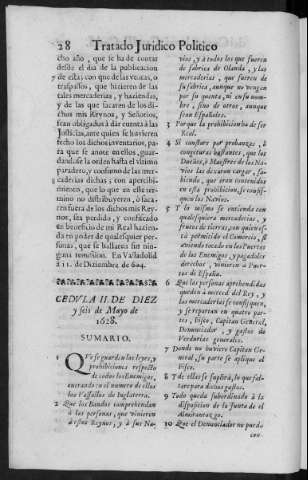 28 Tratado Juridico Politico
cho año, que se ha de contar
desde el dia de la publicacion
de esta; con que de las ventas, o
traspassos, que hizieren de las
tales mercaderias, y haziendo,
y de las que sacaren de los di-
chos mis Reynos, y Señorios,
sean obligados à dar cuenta à las
Justicias, ante quien se huvieren
fecho los dichos inventarios, pa-
ra que se anote en ellos, guar-
dandose la orden hasta el vltimo
paradero, y consumo de las mer-
caderias dichas; con apercibi-
miento, que lo que en este ter-
mino no distribuyeren, ò saca-
ren fuera de los dichos mis Rey-
nos, sea perdido, y confiscado
en beneficio de mi Real hazien-
da en poder de qualesquier per-
sonas, que se hallaren sin nin-
guna remission. En Valladolid
à 11. de Diziembre de 604.
CEDVLA II. DE DIEZ
y seis de Mayo de
1628.
SUMARIO.
1 QVe se guarden las leyes, y
prohibiciones respecto
de todos los Enemigos,
entrando en el numero de ellos
los Vassallos de Inglaterra.
2 Que los Bandos comprehendan
à las personas, que vinieren
à estos Reynos, y à sus Na-
vios, y à todos los que fueren
de fabrica de Olanda, y las
mercaderias, que fueren de
su fabrica, aunque no vengan
por su quenta, ni en su nom-
bre, sino de otros, aunque
sean Españoles.
3 Porque la prohibicion ha de ser
Real.
4 Si constare por probanzas, ò
conjeturas bastantes, que los
Dueños, ò Maestres de los Na-
vios las dexaron cargar, sa-
biendo, que eran contenidas
en esta prohibicion, se confis-
quen los Navios.
5 Y lo mismo se entienda con
qualesquiera mercaderias, y
frutos de tierras, con quien es-
tà permitido el Comercio, si
aviendo tocado en los Puertos
de los Enemigos, y pagadoles
derechos, vinieren à Puer-
tos de España.
6 Que las personas aprehendidas
queden à merced del Rey, y
las mercaderias se confisquen,
y se repartan en quatro par-
tes, Fisco, Capitan General,
Denunciador, y gastos de
Veedurias generales.
7 Donde no huviere Capitan Ge-
neral, su parte se aplique al
Fisco.
8 Y de ellas se suplirà, lo que fal-
tare para dichos gastos.
9 Todo queda subordinado à la
disposicion de la Junta de el
Almirantazgo.
10 Que el Denunciador no pueda
con-